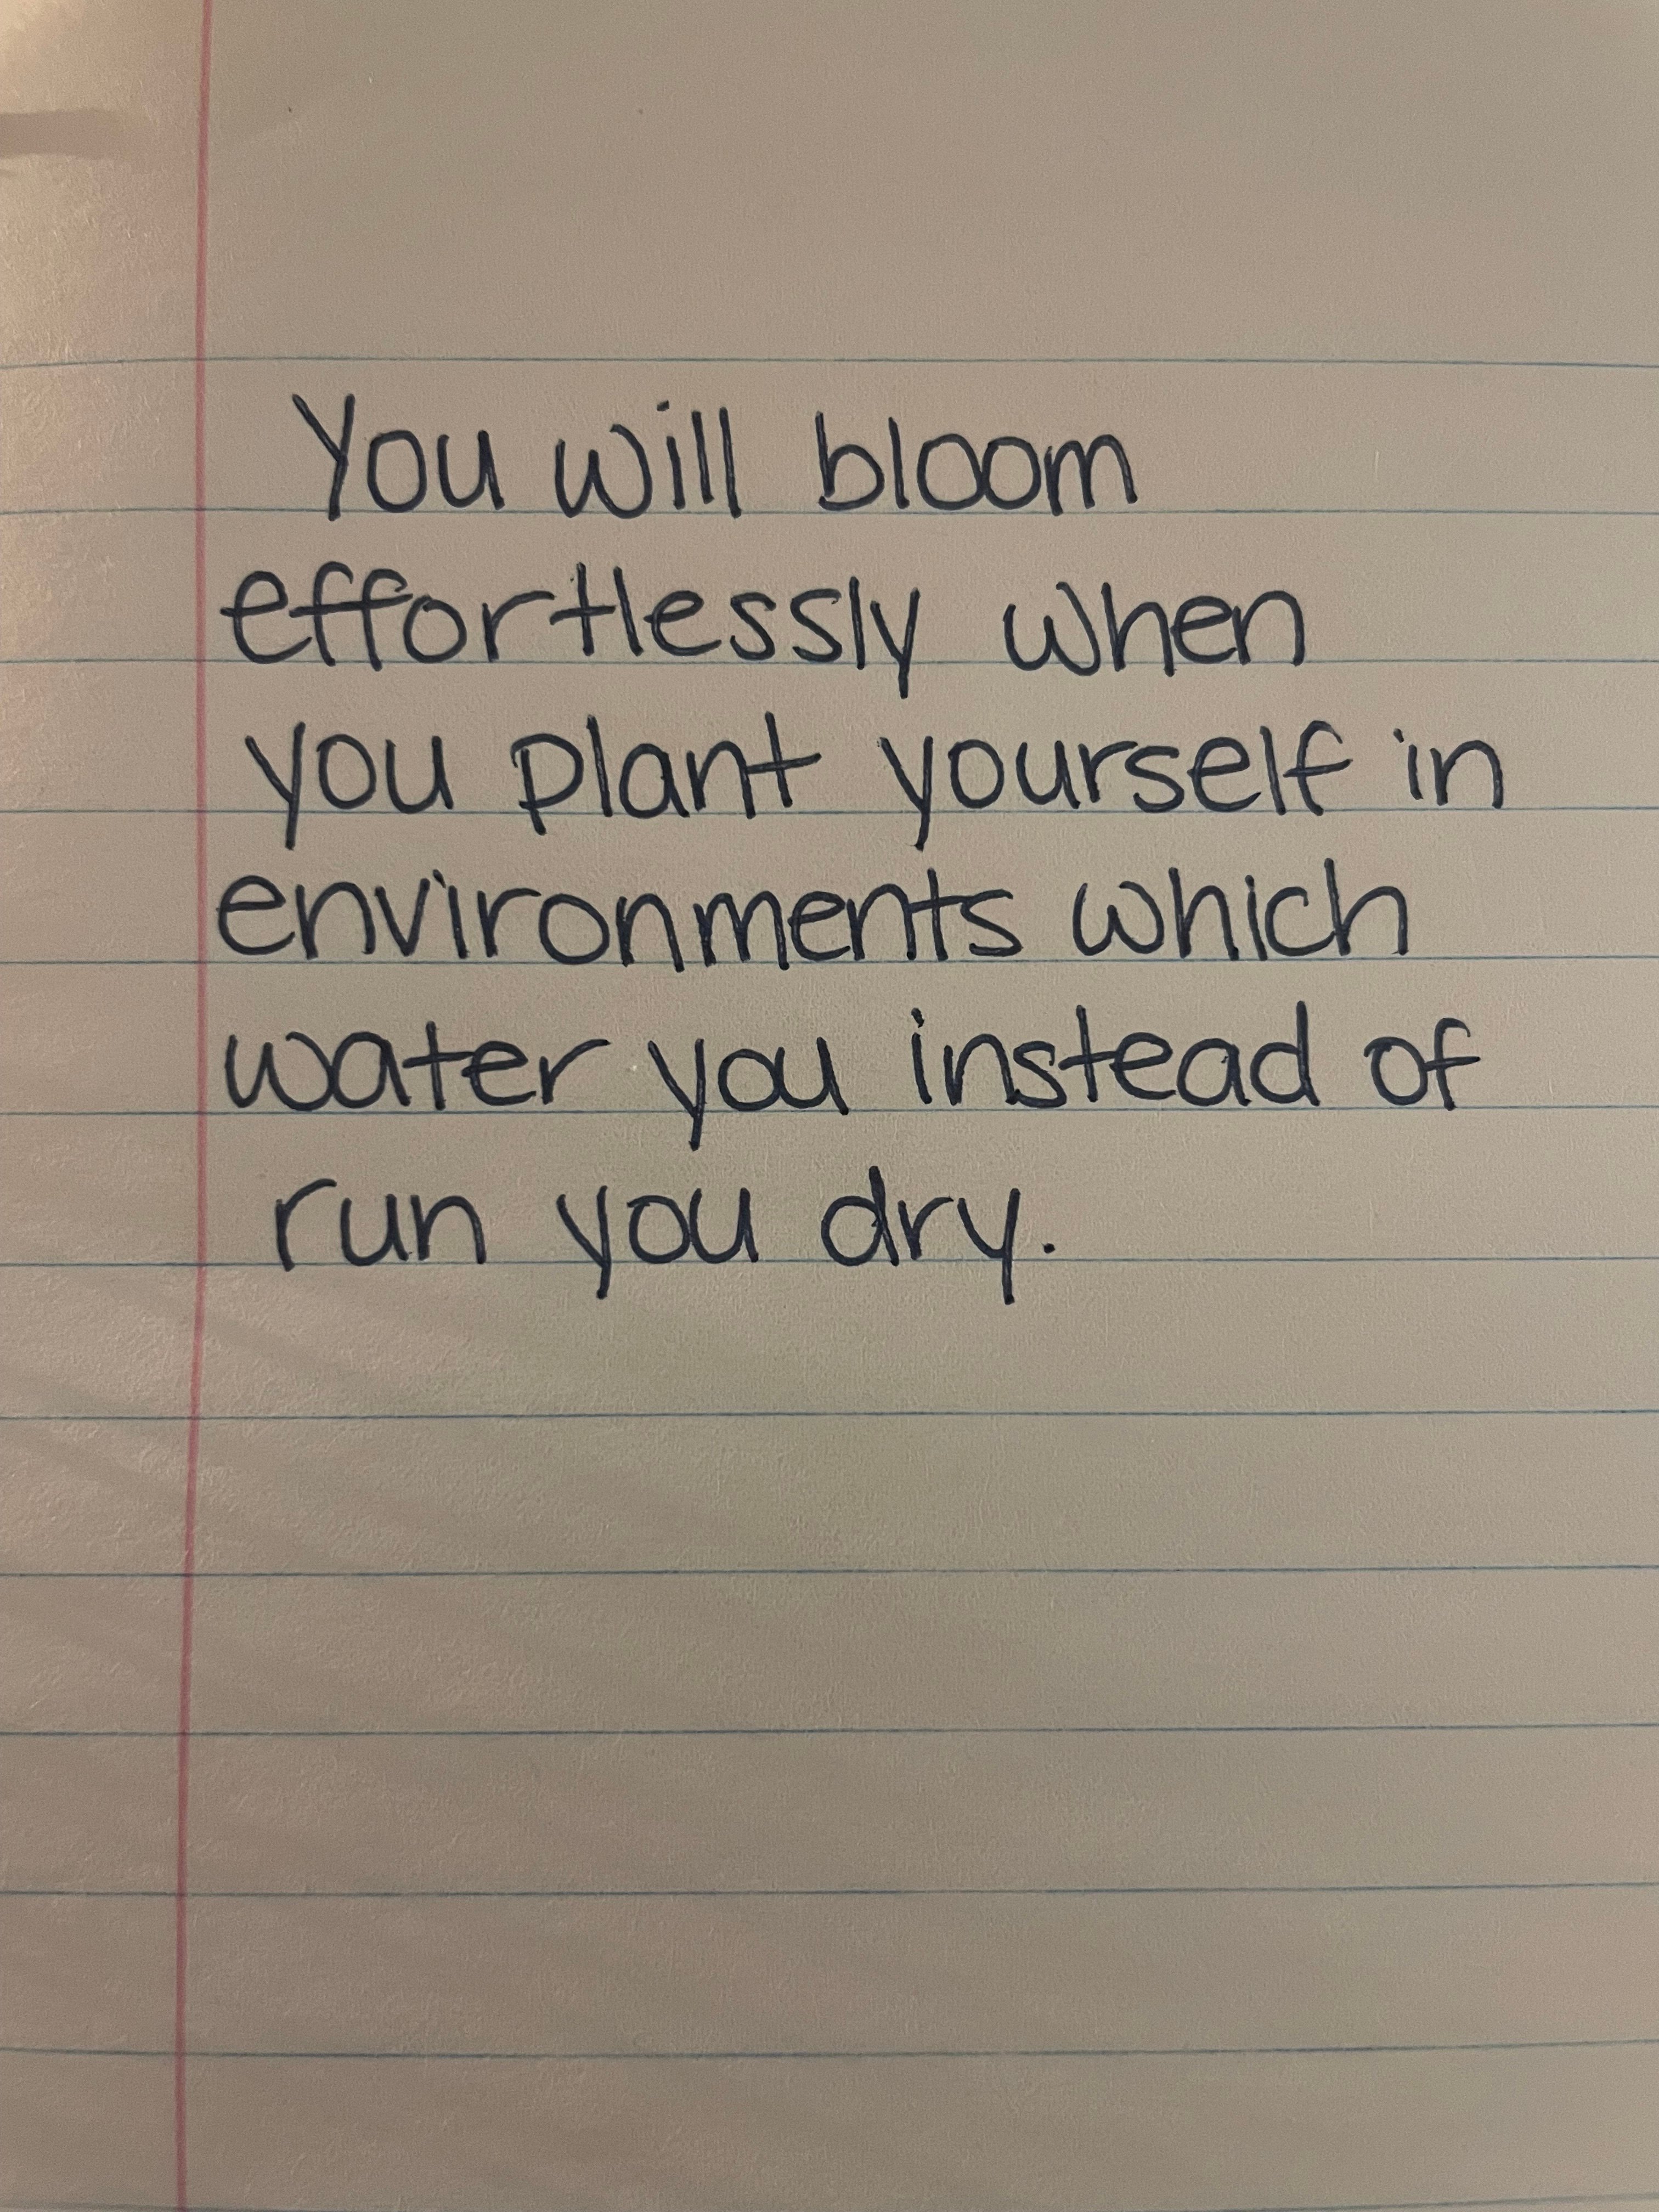 You will bloom
effortlessly when
you plant yourself in
environments which
water you instead of
run you dry.